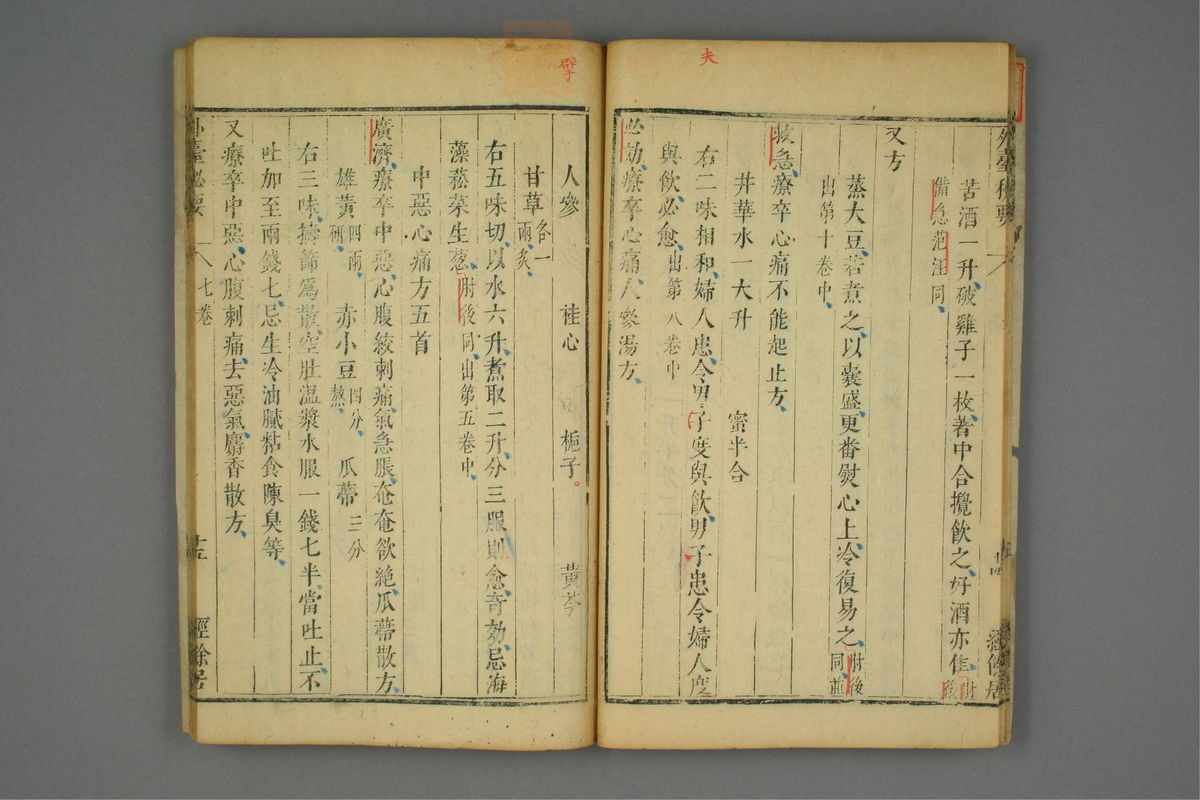 夫
外臺秘要
十四
經餘居
苦酒一升破雞子一枚著中合攪飲之好酒亦佳肘後
備急范汪同
又方
蒸大豆若煮之以囊盛更番熨心上冷復易之肘後同並
出第十卷中
救急療卒心痛不能起止方
井華水一大升　蜜半合
右二味相和婦人患令男子度與飲男子患令婦人度
與飲必愈出第八卷中
必効療卒心痛人參湯方
擘
人參　桂心　梔子　黃芩
甘草各一兩炙
右五味切以水六升煮取二升分三服則愈奇効忌海
藻菘菜生葱肘後同出第五卷中
中惡心痛方五首
廣濟療卒中惡心腹絞刺痛氣急脹奄奄欲絶瓜蒂散方
雄黃四兩研　赤小豆四分熬　瓜蒂三分
右三味擣篩爲散空肚溫漿水服一錢七半當吐止不
吐加至兩錢七忌生冷油膩粘食陳臭等
又療卒中惡心腹刺痛去惡氣麝香散方
外臺秘要
七卷
十五
經餘居